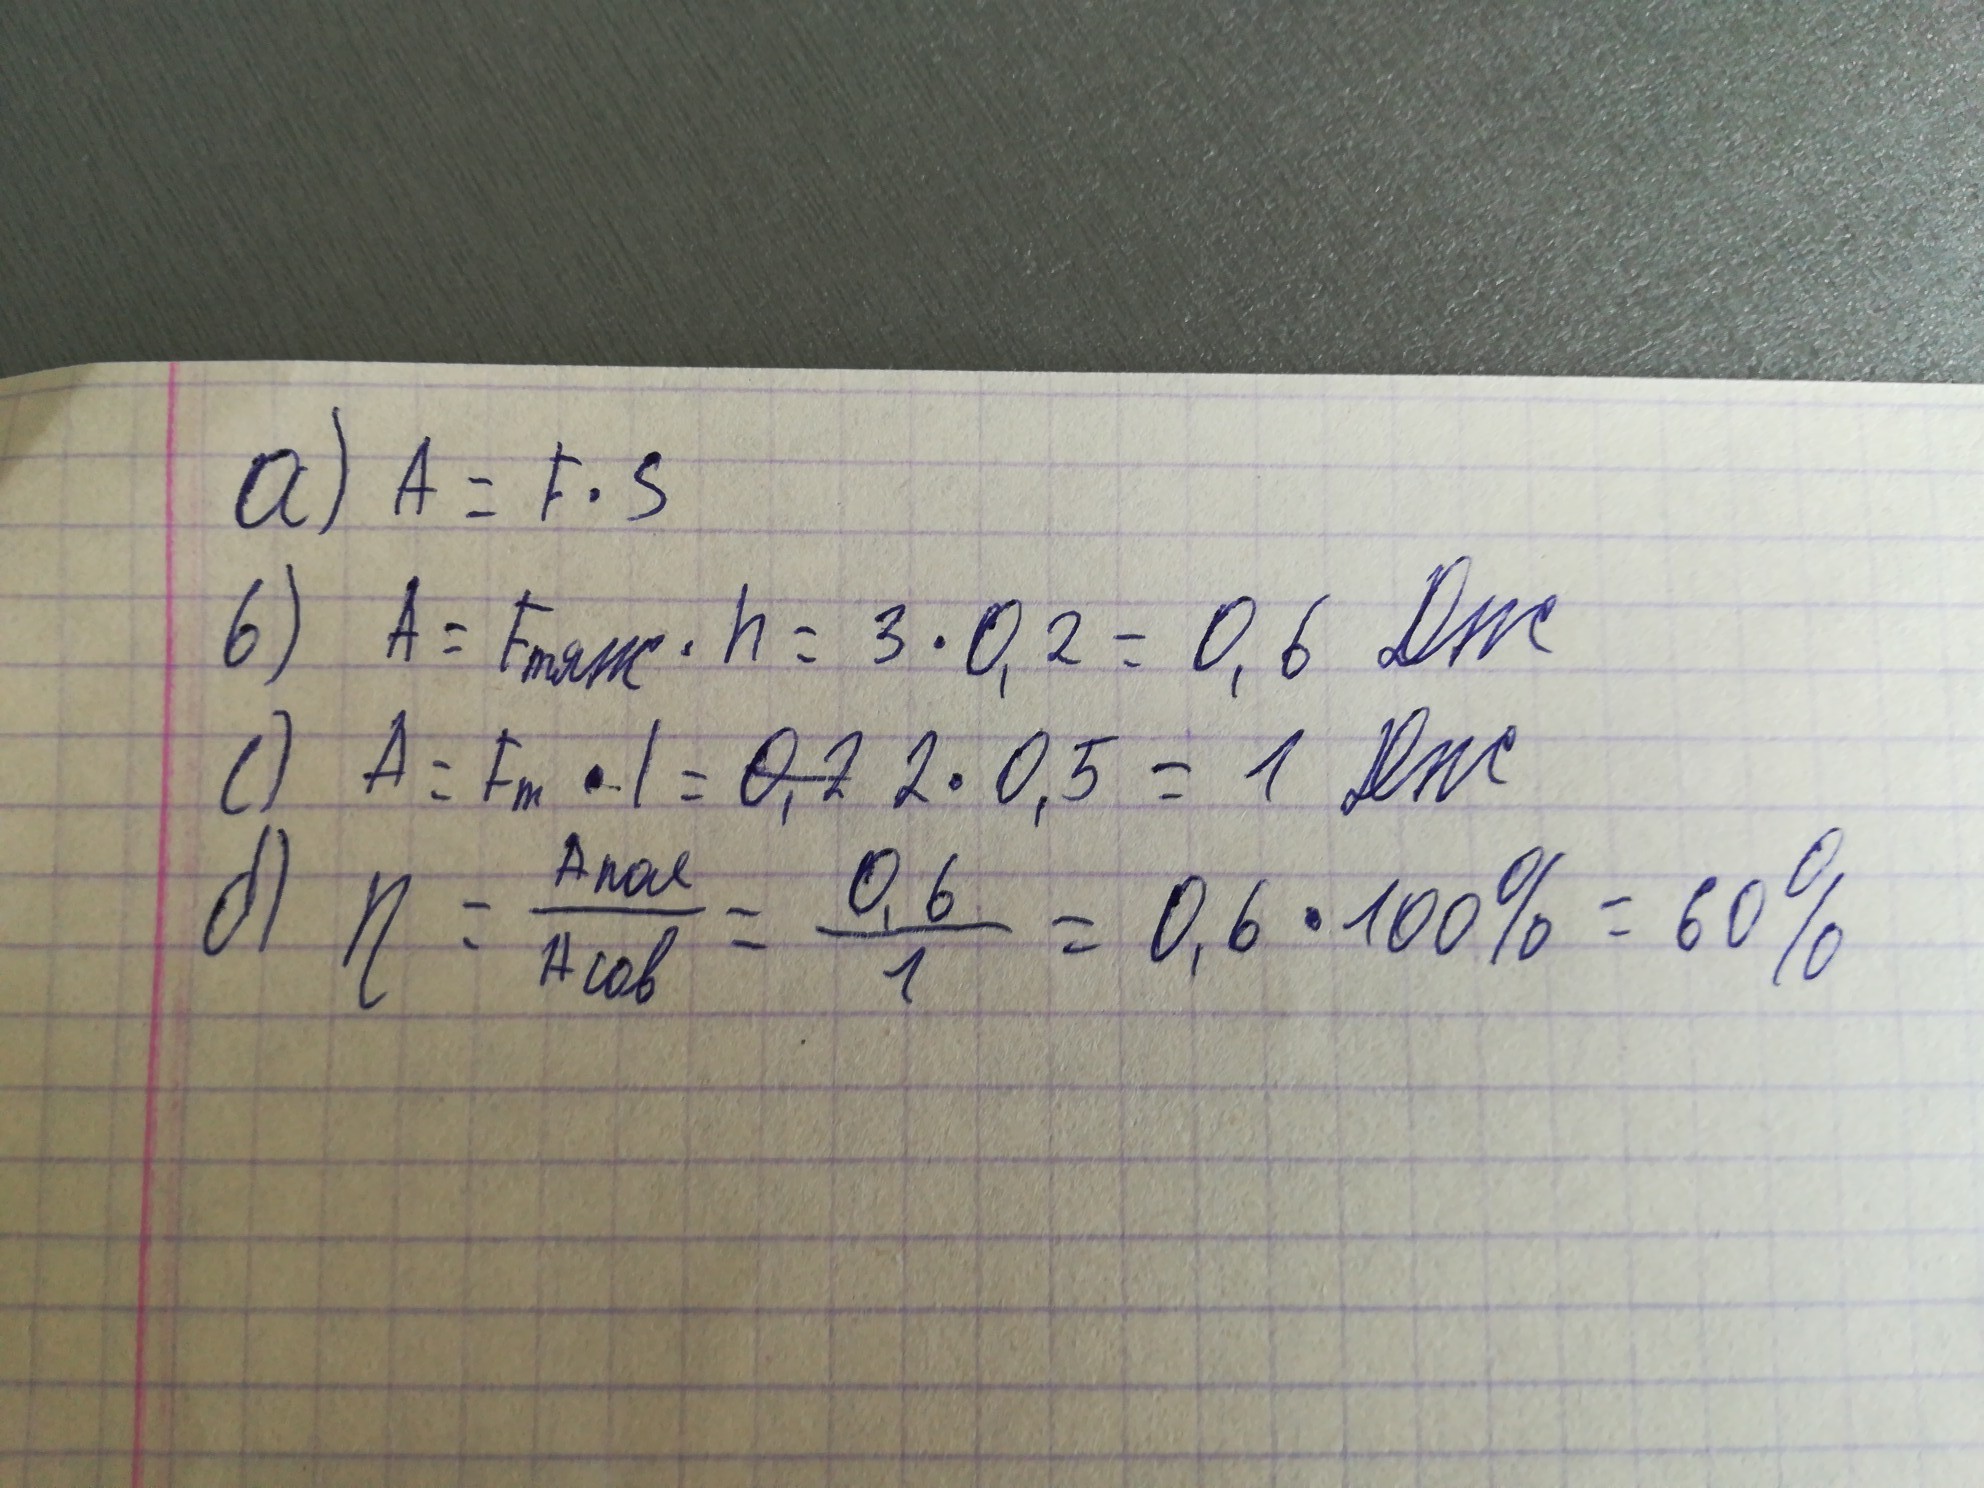 a) A = F · S
b) A = Fтяж · h = 3 · 0,2 = 0,6 Дж
c) A = Fт · l = 0,2 2 · 0,5 = 1 Дж
d) η = Aпол/Aсов = 0,6/1 = 0,6 · 100% = 60%